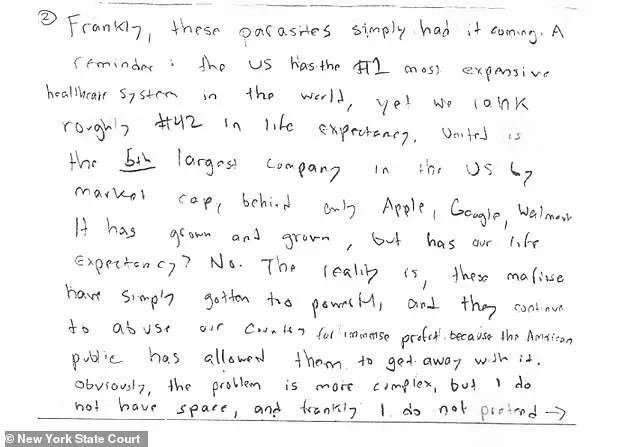 ② Frankly, these parasites simply had it coming. A
reminder: the US has the #1 most expensive
healthcare system in the world, yet we rank
roughly #42 in life expectancy. United is
the 5th largest company in the US by
market cap, behind only Apple, Google, Walmart
It has grown and grown, but has our life
expectancy? No. The reality is, these mafiose
have simply gotten too powerful, and they continue
to abuse our country for immense profit because the American
public has allowed them to get away with it.
Obviously, the problem is more complex, but I do
not have space, and frankly I do not pretend →
© New York State Court